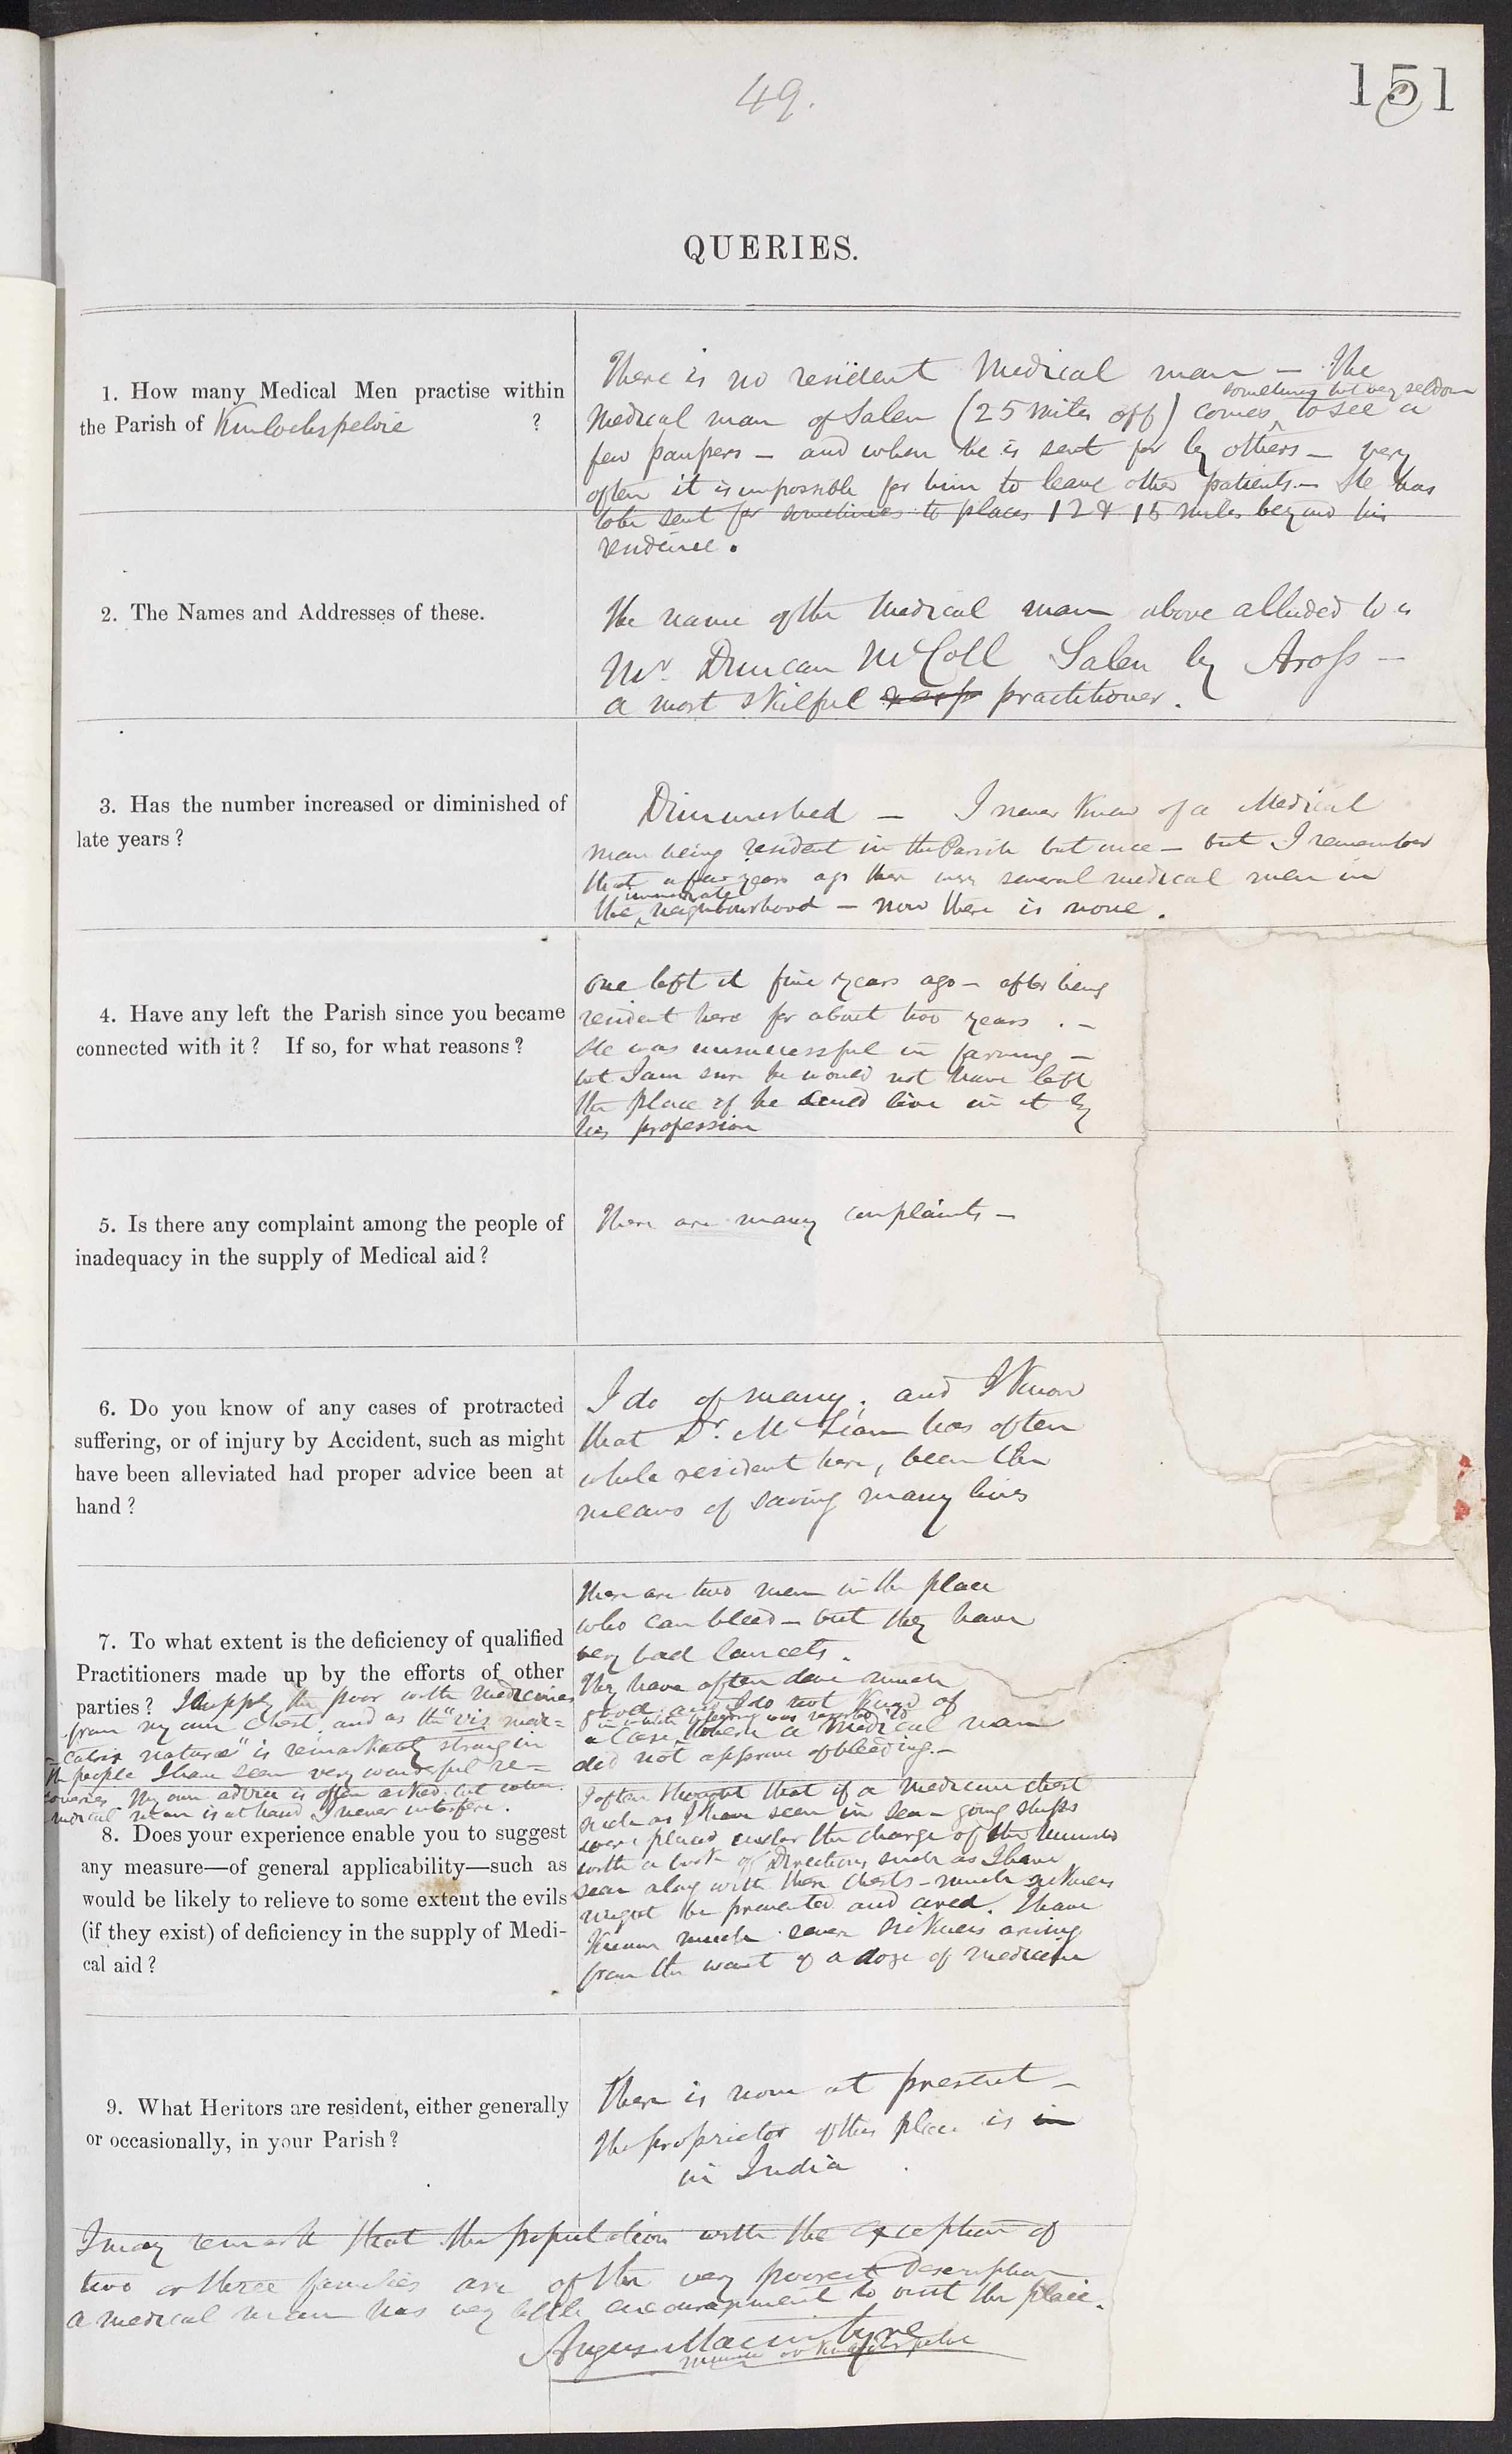 49.
151
QUERIES.
1. How many Medical Men practise within
the Parish of Kinlochspelvie ?
There is no resident Medical man — The
sometimes but very seldom
Medical man of Salen (25 miles off) comes ^ to see a
few paupers — and when he is sent for by others — very
often it is impossible for him to leave other patients — He has
to be sent for sometimes to places 12 & 15 miles beyond his
residence.
2. The Names and Addresses of these.
The name of the Medical man above alluded to is
Mr. Duncan McColl Salen by Aross —
a most skilful practitioner.
3. Has the number increased or diminished of
late years?
Diminished — I never knew of a Medical
man being resident in the Parish but once — but I remember
that a few years ago there were several medical men in
immediate
the ^ neighbourhood — now there is none.
4. Have any left the Parish since you became
connected with it? If so, for what reasons?
One left it five years ago — after being
resident here for about two years. —
He was unsuccessful in farming —
but I am sure he would not have left
the place if he could live in it by
his profession
5. Is there any complaint among the people of
inadequacy in the supply of Medical aid?
There are many complaints —
6. Do you know of any cases of protracted
suffering, or of injury by Accident, such as might
have been alleviated had proper advice been at
hand?
I do of many; and I know
that Dr. Mc has often
while resident here, been the
means of saving many lives
7. To what extent is the deficiency of qualified
Practitioners made up by the efforts of other
parties? I supply the poor with medicines
from my own chest, and as the "vis medi=
=catrix naturæ" is remarkably strong in
the people I have seen very wonderful re=
coveries. My own advice is often asked but when
medical man is at hand I never interfere.
There are two men in the place
who can bleed — but they have
very bad lancets.
They have often done much
good and I do not know of
in which bleeding was resorted to
a case ^ where a medical man
did not approve of bleeding. —
8. Does your experience enable you to suggest
any measure—of general applicability—such as
would be likely to relieve to some extent the evils
(if they exist) of deficiency in the supply of Medi-
cal aid?
I often thought that if a medicine chest
such as I have seen in sea-going ships
were placed under the charge of the Minister
with a book of Directions such as I have
seen along with these chests — much sickness
might be prevented and cured. I have
known much sickness arising
from the want of a dose of medicine
9. What Heritors are resident, either generally
or occasionally, in your Parish?
There is none at present —
The proprietor of the place is in
in India.
I may remark that the population with the exception of
two or three families are of the very poorest description
a medical man has very little encouragement to visit the place.
Angus Macintyre
Minister of Kinlochspelvie